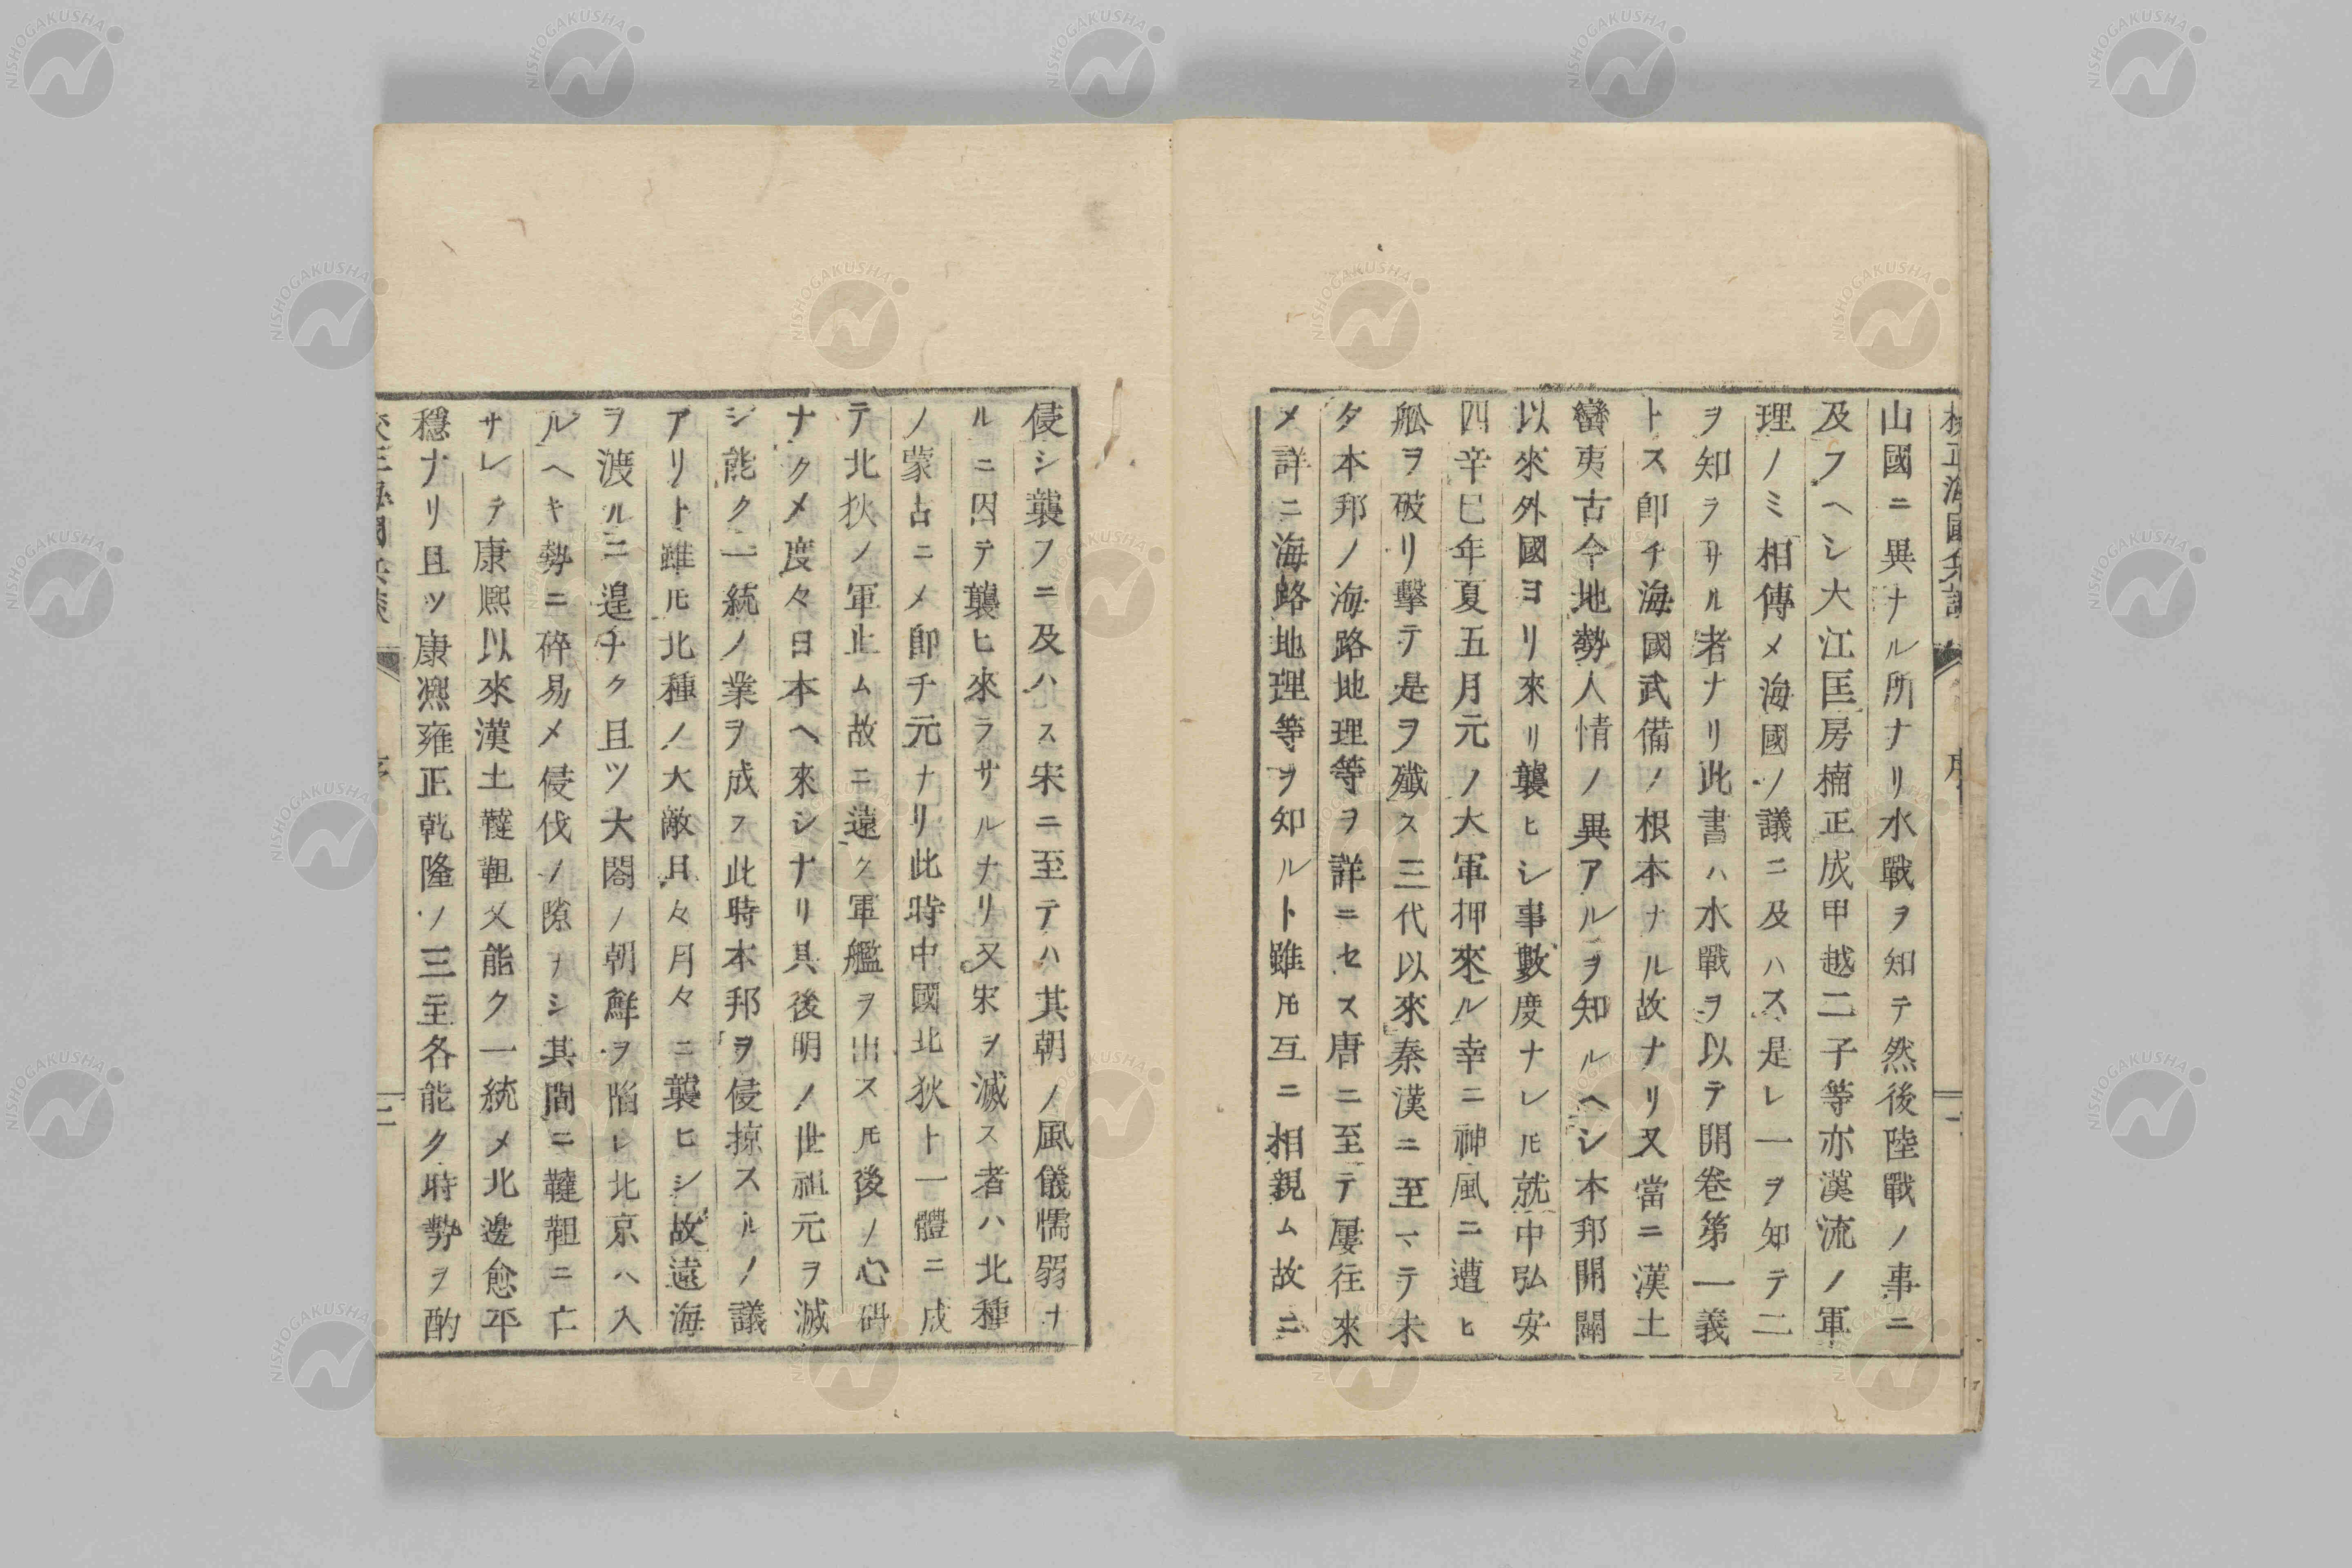 校正海國兵談 序 一
山國ニ異ナル所ナリ水戰ヲ知テ然後陸戰ノ事ニ
及フヘシ大江匡房楠正成甲越二子等亦漢流ノ軍
理ノミ相傳メ海國ノ議ニ及ハス是レ一ヲ知テ二
ヲ知ラサル者ナリ此書ハ水戰ヲ以テ開卷第一義
トス卽チ海國武備ノ根本ナル故ナリ又當ニ漢土
蠻夷古今地勢人情ノ異アルヲ知ルヘシ本邦開闢
以來外國ヨリ來リ襲ヒシ事數度ナレ𪜈就中弘安
四辛巳年夏五月元ノ大軍押來ル幸ニ神風ニ遭ヒ
舩ヲ破リ擊テ是ヲ殲ス三代以來秦漢ニ至マテ未
タ本邦ノ海路地理等ヲ詳ニセス唐ニ至テ屢往來
メ詳ニ海路地理等ヲ知ルト雖𪜈互ニ相親ム故ニ
侵シ襲フニ及ハス宋ニ至テハ其朝ノ風儀懦弱ナ
ルニ因テ襲ヒ來ラサルナリ又宋ヲ滅ス者ハ北種
ノ蒙古ニメ卽チ元ナリ此時中國北狄ト一體ニ成
テ北狄ノ軍止ム故ニ遠ク軍艦ヲ出ス𪜈後ノ心碍
ナクメ度々日本ヘ來シナリ其後明ノ世祖元ヲ滅
シ能ク一統ノ業ヲ成ス此時本邦ヲ侵掠スルノ議
アリト雖𪜈北種ノ大敵日々月々ニ襲ヒシ故遠海
ヲ渡ルニ遑チク且ツ大閤ノ朝鮮ヲ陷レ北京ヘ入
ルヘキ勢ニ碎易メ侵伐ノ隙ナシ其間ニ韃靼ニ亡
サレテ康熙以來漢土韃靼又能ク一統メ北邊愈平
穩ナリ且ツ康熙雍正乾隆ノ三主各能ク時勢ヲ酌
校正海國兵談 序 二
NISHOGAKUSHA